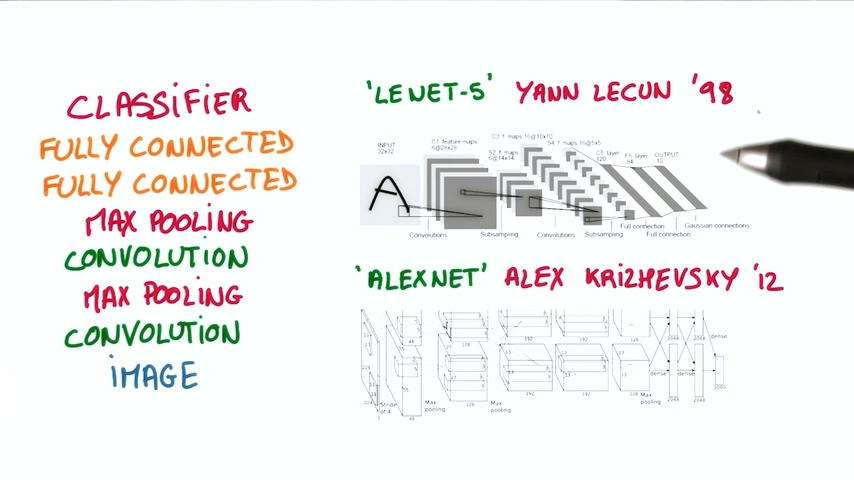 CLASSIFIER
FULLY CONNECTED
FULLY CONNECTED
MAX POOLING
CONVOLUTION
MAX POOLING
CONVOLUTION
IMAGE
'LENET-5' YANN LECUN '98
INPUT
32x32
C1: feature maps
6@28x28
S2: f. maps
6@14x14
C3: f. maps 16@10x10
S4: f. maps 16@5x5
C5: layer
120
F6: layer
84
OUTPUT
10
A
Convolutions
Subsampling
Convolutions
Subsampling
Full connection
Full connection
Gaussian connections
'ALEXNET' ALEX KRIZHEVSKY '12
224
224
Stride
of 4
55
48
55
48
Max
pooling
128
27
Max
pooling
192
192
13
192
192
128
128
13
Max
pooling
dense
dense
dense
2048
2048
2048
2048
1000